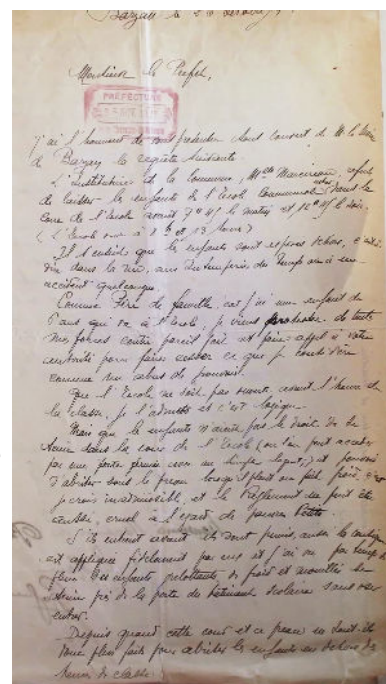 Monsieur le Préfet,
PRÉFECTURE
J'ai l'honneur de vous présenter sous couvert de M. le Maire
de Barzan la requête suivante.
L'institutrice de la Commune, Melle refuse
de laisser les enfants de l'Ecole Communale dans la
Cour de l'école avant 7h 45 le matin et 12h 45 le soir,
(L'Ecole ouvre à 8h et 13 heures)
Il s'ensuit que les enfants sont exposés dehors, c'est à
dire dans la rue, aux intempéries du temps ou à un
accident quelconque.
Comme Père de famille, car j'ai un enfant de
5 ans qui va à l'école, je viens protester de toutes
mes forces contre pareil fait et faire appel à votre
autorité pour faire cesser ce que je considère
comme un abus de pouvoir.
Que l'Ecole ne soit pas ouverte avant l'heure de
la classe, je l'admets et c'est logique.
Mais que les enfants n'aient pas le droit de se
tenir dans la cour de l'Ecole (où l'on peut accéder
par une porte fermée avec un simple loquet,) et puissent
s'abriter sous le préau lorsqu'il pleut ou fait froid,
je crois inadmissible, et le Règlement ne peut être
aussi cruel à l'égard de pauvres petits.
S'ils entrent avant ils sont punis, aussi la consigne
est appliquée fidèlement par eux et j'ai vu par temps de
pluie des enfants grelottants de froid et mouillés se
tenir près de la porte du bâtiment scolaire sans oser
entrer.
Depuis quand cette cour et ce préau ne sont-ils
plus faits pour abriter les enfants en dehors des
heures de classe.